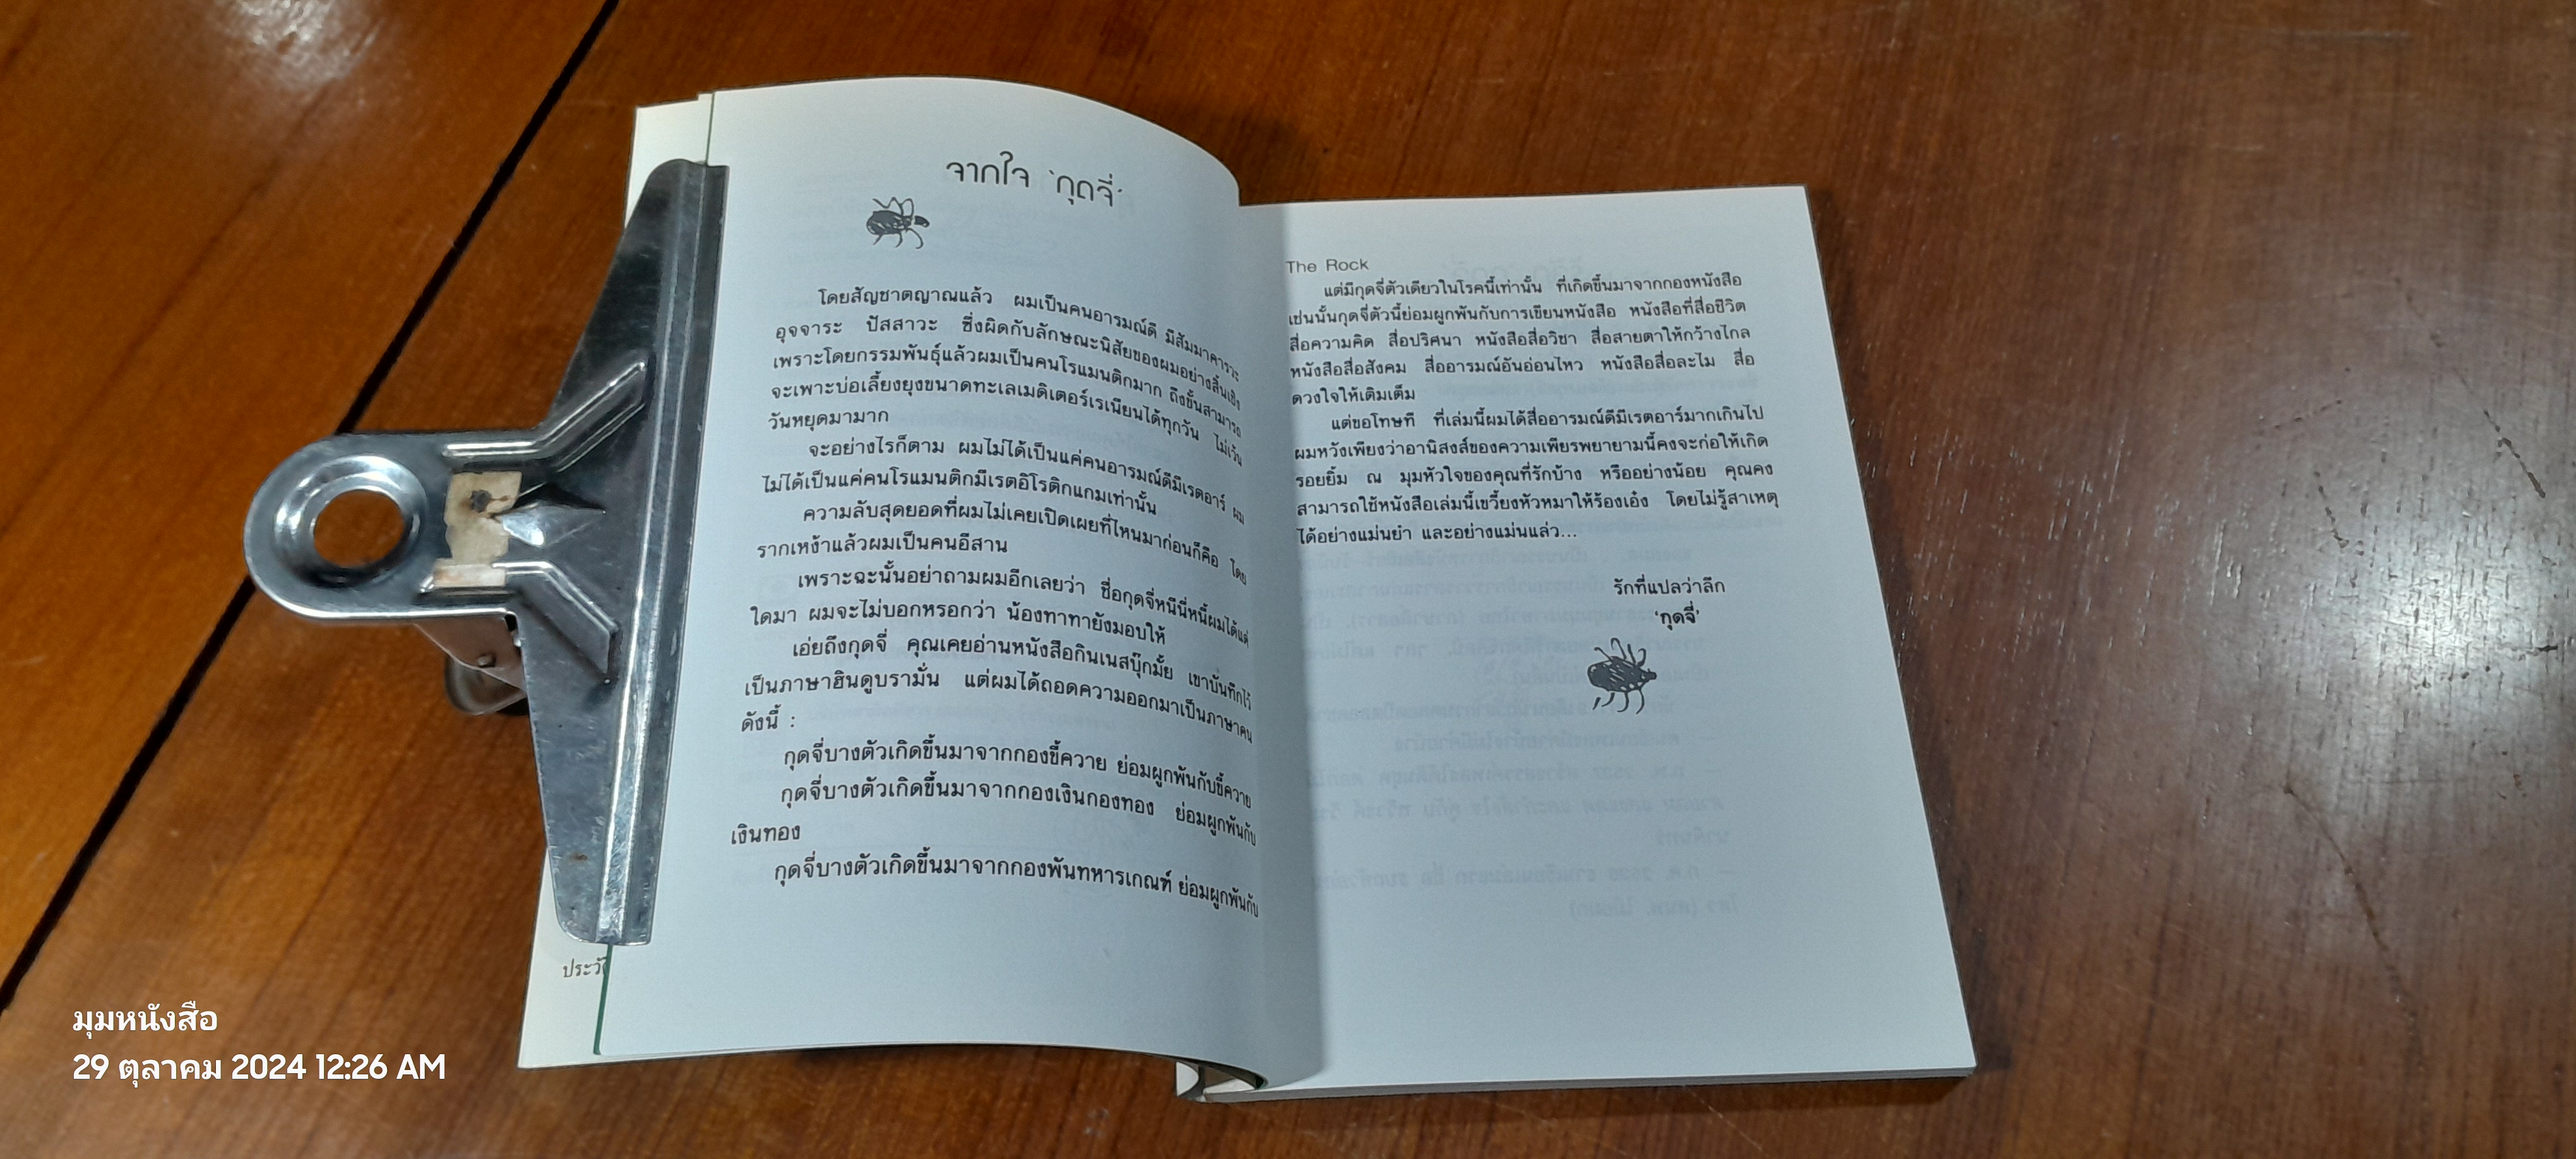 จากใจ 'กุดจี่'
โดยสัญชาตญาณแล้ว ผมเป็นคนอารมณ์ดี มีสัมมาคารวะ
อุจจาระ ปัสสาวะ ซึ่งผิดกับลักษณะนิสัยของผมอย่างสิ้นเชิง
เพราะโดยกรรมพันธุ์แล้วผมเป็นคนโรแมนติกมาก ถึงขั้นสามารถ
จะเพาะบ่อเลี้ยงยุงขนาดทะเลเมดิเตอร์เรเนียนได้ทุกวัน ไม่เว้น
วันหยุดมามาก
จะอย่างไรก็ตาม ผมไม่ได้เป็นแค่คนอารมณ์ดีมีเรตอาร์ ผม
ไม่ได้เป็นแค่คนโรแมนติกมีเรตอิโรติกแกมเท่านั้น
ความลับสุดยอดที่ผมไม่เคยเปิดเผยที่ไหนมาก่อนก็คือ โดย
รากเหง้าแล้วผมเป็นคนอีสาน
เพราะฉะนั้นอย่าถามผมอีกเลยว่า ชื่อกุดจี่หนีนี่หนี้ผมได้แต่
ใดมา ผมจะไม่บอกหรอกว่า น้องทาทายังมอบให้
เอ่ยถึงกุดจี่ คุณเคยอ่านหนังสือกินเนสบุ๊กมั้ย เขาบันทึกไว้
เป็นภาษาฮินดูบรามั่น แต่ผมได้ถอดความออกมาเป็นภาษาคน
ดังนี้ :
กุดจี่บางตัวเกิดขึ้นมาจากกองขี้ควาย ย่อมผูกพันกับขี้ควาย
กุดจี่บางตัวเกิดขึ้นมาจากกองเงินกองทอง ย่อมผูกพันกับ
เงินทอง
กุดจี่บางตัวเกิดขึ้นมาจากกองพันทหารเกณฑ์ ย่อมผูกพันกับ
The Rock
แต่มีกุดจี่ตัวเดียวในโรคนี้เท่านั้น ที่เกิดขึ้นมาจากกองหนังสือ
เช่นนั้นกุดจี่ตัวนี้ย่อมผูกพันกับการเขียนหนังสือ หนังสือที่สื่อชีวิต
สื่อความคิด สื่อปริศนา หนังสือสื่อวิชา สื่อสายตาให้กว้างไกล
หนังสือสื่อสังคม สื่ออารมณ์อันอ่อนไหว หนังสือสื่อละไม สื่อ
ดวงใจให้เติมเต็ม
แต่ขอโทษที ที่เล่มนี้ผมได้สื่ออารมณ์ดีมีเรตอาร์มากเกินไป
ผมหวังเพียงว่าอานิสงส์ของความเพียรพยายามนี้คงจะก่อให้เกิด
รอยยิ้ม ณ มุมหัวใจของคุณที่รักบ้าง หรืออย่างน้อย คุณคง
สามารถใช้หนังสือเล่มนี้เขวี้ยงหัวหมาให้ร้องเอ๋ง โดยไม่รู้สาเหตุ
ได้อย่างแม่นยำ และอย่างแม่นแล่ว...
รักที่แปลว่าลึก
'กุดจี่'
มุมหนังสือ
29 ตุลาคม 2024 12:26 AM